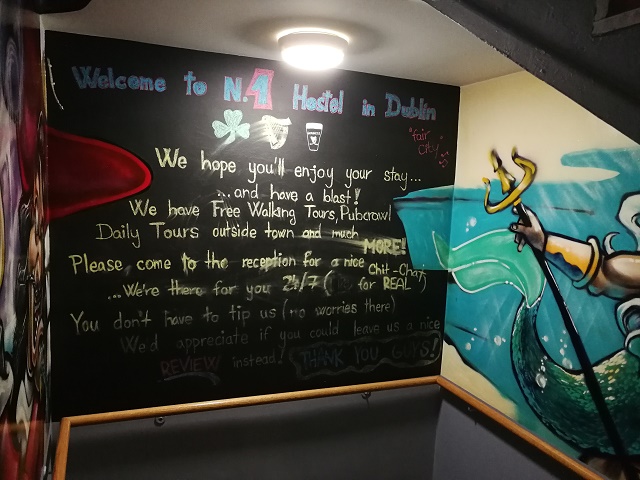 Welcome to N.1 Hostel in Dublin
"fair City"
We hope you'll enjoy your stay...
...and have a blast!
We have Free Walking Tours, Pubcrawl
Daily Tours outside town and much
MORE!
Please come to the reception for a nice Chit-Chat
...We're there for you 24/7 ( for REAL !)
You don't have to tip us (no worries there)
We'd appreciate if you could leave us a nice
REVIEW instead! THANK YOU GUYS!